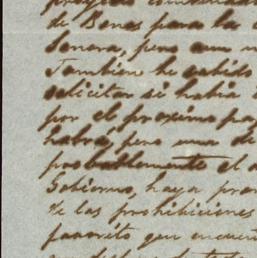 proyecto
de Bonos para la
Sonora, pero aun
Tambien he sabido
solicitar si habia
por el proximo pa
habrá, pero una de
probablemente el
Gobierno, haya pro
de las prohibiciones
favorito que encuen